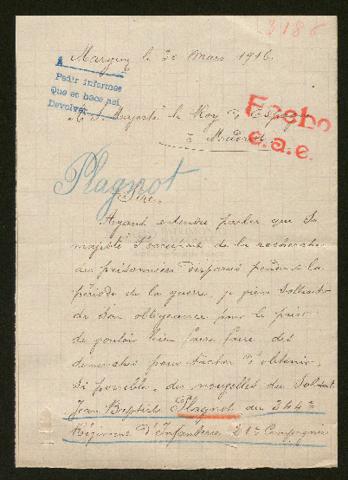 3186
le 30 Mars 1916
A
Pedir informes
Que se hace así
Devolver
A S. Majesté le Roy d'Espagne
à Madrid
Fecho
e.a.e.
Plagnot
Sire,
Ayant entendu parler que Sa
majesté s'occupait de la recherche
des prisonniers disparus pendant la
période de la guerre, je viens solliciter
de Son obligeance pour le prier
de vouloir bien faire faire des
demarches pour tacher d'obtenir
si possible, des nouvelles du Soldat
Jean Baptiste Plagnot du 344e
Régiment d'Infanterie 21e Compagnie